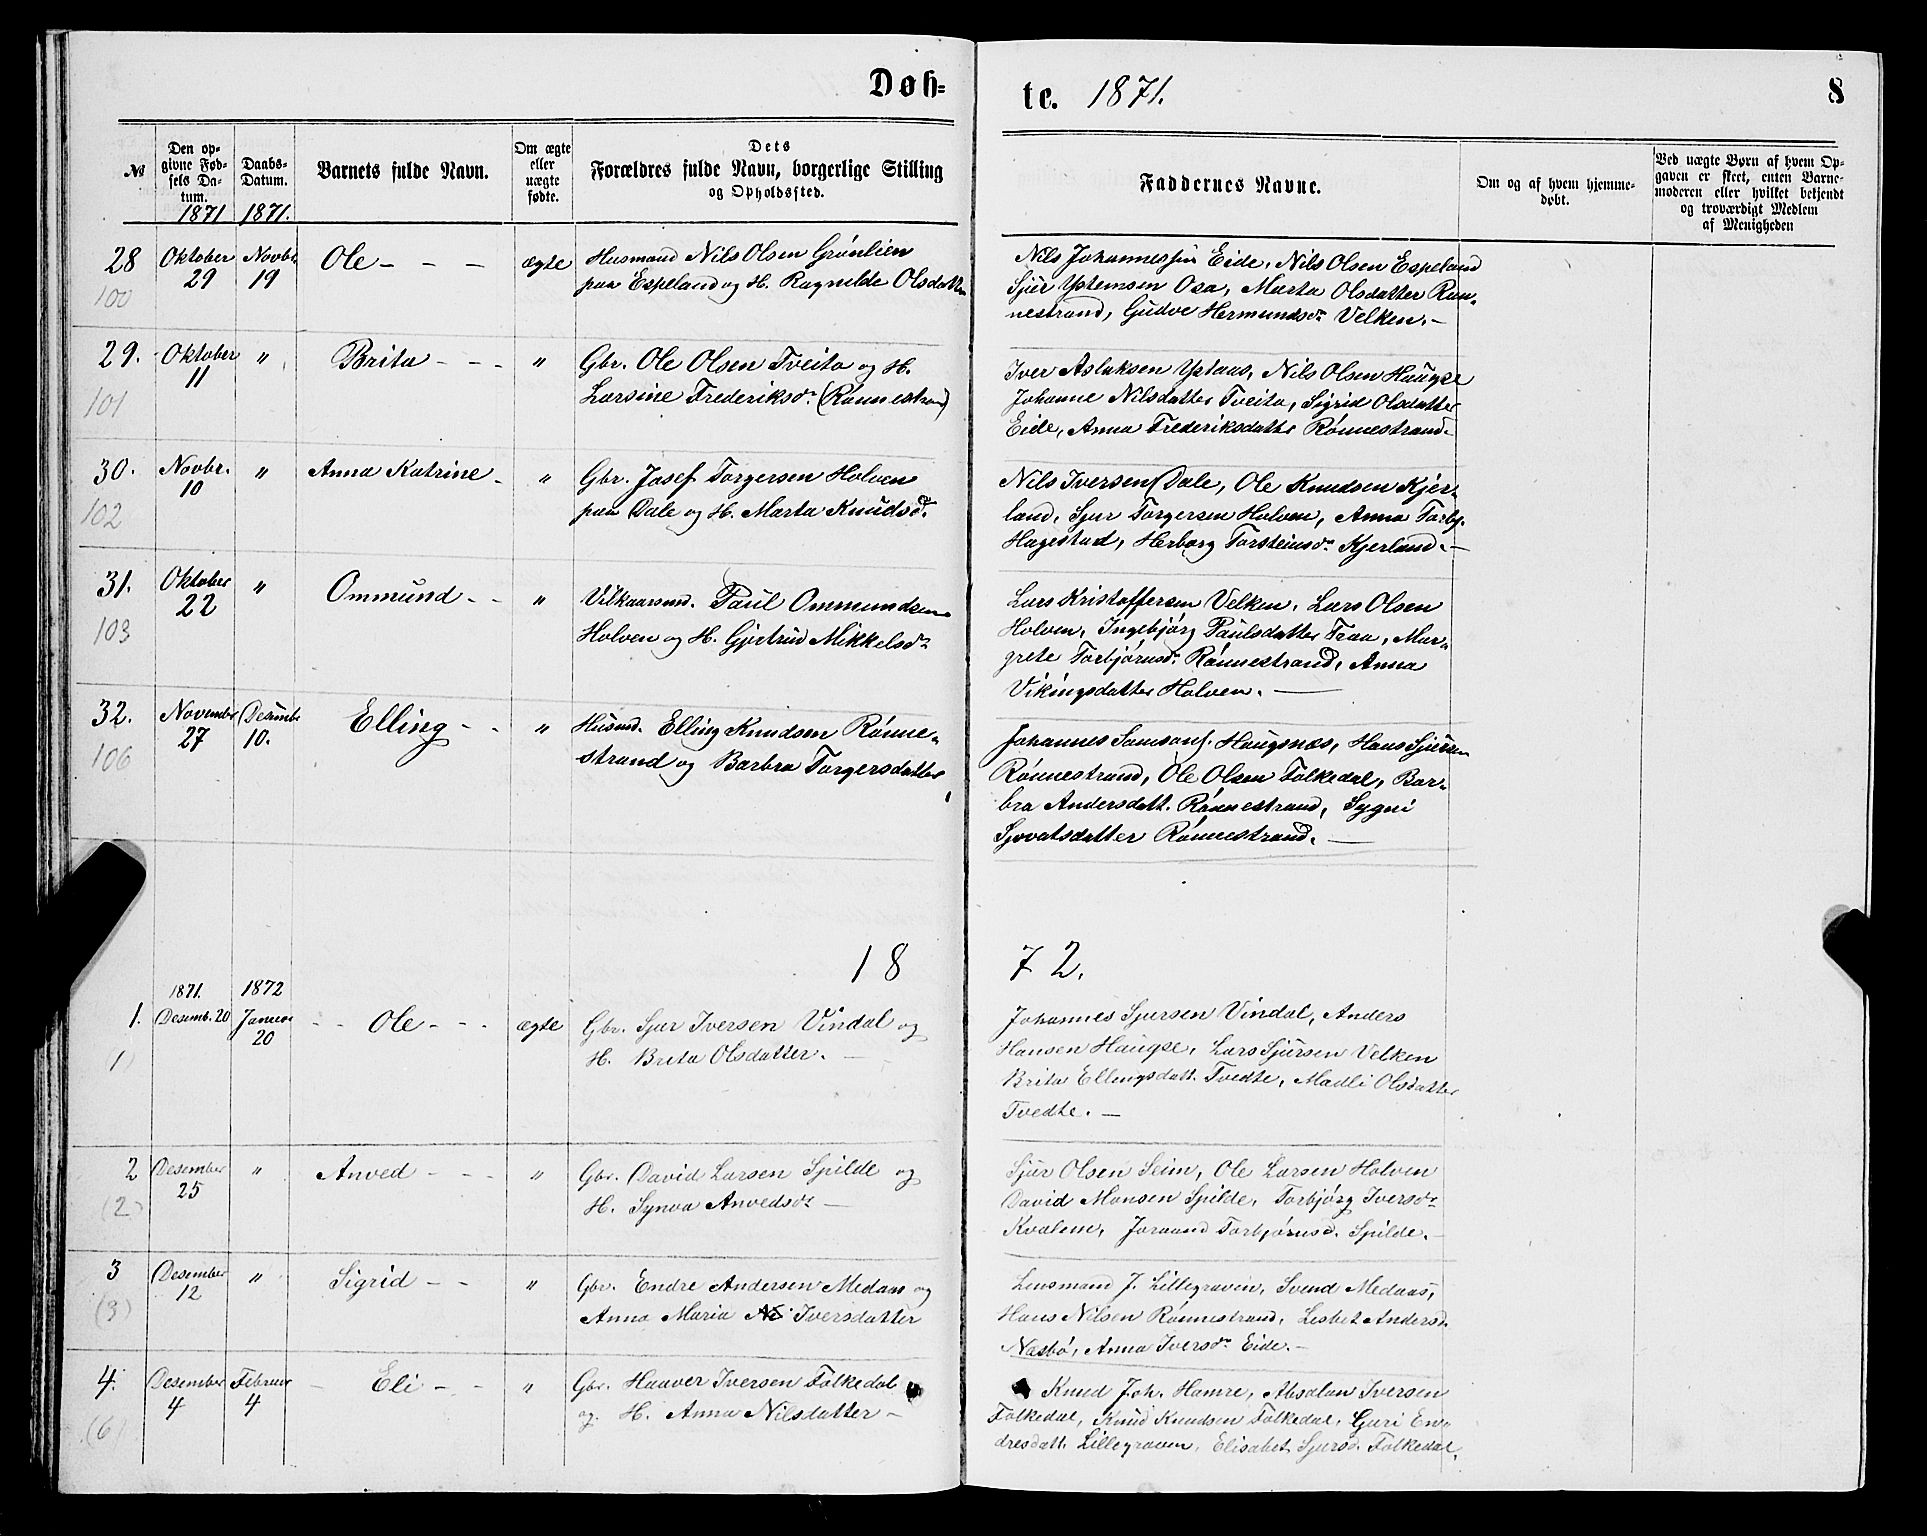 Døb=
te. 1871.
8
№
Den op-
givne Fød-
sels Da-
tum.
1871
Daabs-
Datum.
1871.
Barnets fulde Navn.
Om ægte
eller
uægte
fødte.
Dets
Forældres fulde Navn, borgerlige Stilling
og Opholdssted.
Faddernes Navne.
Om og af hvem hjemme-
døbt.
Ved uægte Børn af hvem Op-
gaven er skeet, enten Barne-
moderen eller hvilket bekjendt
og troværdigt Medlem
af Menigheden
28
100
Oktober
29
Novbr.
19
Ole - - -
ægte
Husmand Nils Olsen Grønlien
paa Espeland og H. Ragnilde Olsdatter
Nils Johannessen Eide, Nils Olsen Espeland
Sjur Ystensen Osa, Marta Olsdatter Røn-
nestrand, Gudve Hermundsdr Velken. -
29.
101
Oktober
11
"
Brita - - -
"
Gbr. Ole Olsen Tveito og H.
Larsine Frederiksdr. (Rønnestran)
Iver Aslaksen Ystaas, Nils Olsen Haugse
Johanne Nilsdatter Tveito, Sigrid Olsdatter
Eide, Anna Frederiksdatter Rønnestrand.
30.
102
Novbr.
10
"
Anna Katrine -
"
Gbr. Josef Torgersen Holven
paa Dale og H. Marta Knudsd.
Nils Iversen Dale, Ole Knudsen Kjer-
land, Sjur Torgersen Holven, Anna Torbj.
Hagestad, Herborg Torsteinsdr Kjerland. -
31.
103
Oktober
22
"
Ommund - -
"
Vilkaarsmd. Paul Ommundsen
Holven og H. Gjertrud Mikkelsdr
Lars Kristoffersen Velken, Lars Olsen
Holven, Ingebjørg Paulsdatter Traa, Mar-
grete Torbjørnsdr. Rønnestrand, Anna
Vikingsdatter Holven. -
32.
106
November
27
Desembr
10.
Elling - -
"
Husmd. Elling Knudsen Rønne-
strand og Barbra Torgersdatter
Johannes Samsons. Haugsnæs, Hans Sjursen
Rønnestrand, Ole Olsen Folkedal, Bar-
bra Andersdatt. Rønnestrand, Sygni
Sjovatsdatter Rønnestrand. -
18
72.
1.
(1)
1871.
Desemb. 20
1872
Januar
20
- - Ole - - -
ægte
Gbr. Sjur Iversen Vindal og
H. Brita Olsdatter. -
Johannes Sjursen Vindal, Anders
Hansen Haugse, Lars Sjursen Velken
Brita Ellingsdatt. Tvedte, Madli Olsdatter
Tvedte. -
2
(2)
Desember
25
"
Anved - - -
"
Gbr. David Larsen Spilde og
H. Synva Anvedsdr -
Sjur Olsen Seim, Ole Larsen Holven
David Monsen Spilde, Torbjørg Iversdr
Kvalem, Joraand Torbjørnsd. Spilde. -
3
(3)
Desember
12
"
Sigrid - -
"
Gbr. Endre Andersen Medaas og
Anna Maria Iversdatter
Lensmand J. Lillegraven, Svend Medaas,
Hans Nilsen Rønnestrand, Lisbet Andersd.
Næsbø, Anna Iversdr Eide. -
4.
(6)
Desember
4
Februar
4
- Eli - -
"
Gbr. Haaver Iversen Folkedal
og H. Anna Nilsdatter -
Knud Joh. Hamre, Absalon Iversen
Folkedal, Knud Knudsen Folkedal, Guri En-
dresdatt. Lillegraven, Elisabet Sjursd. Folkedal.